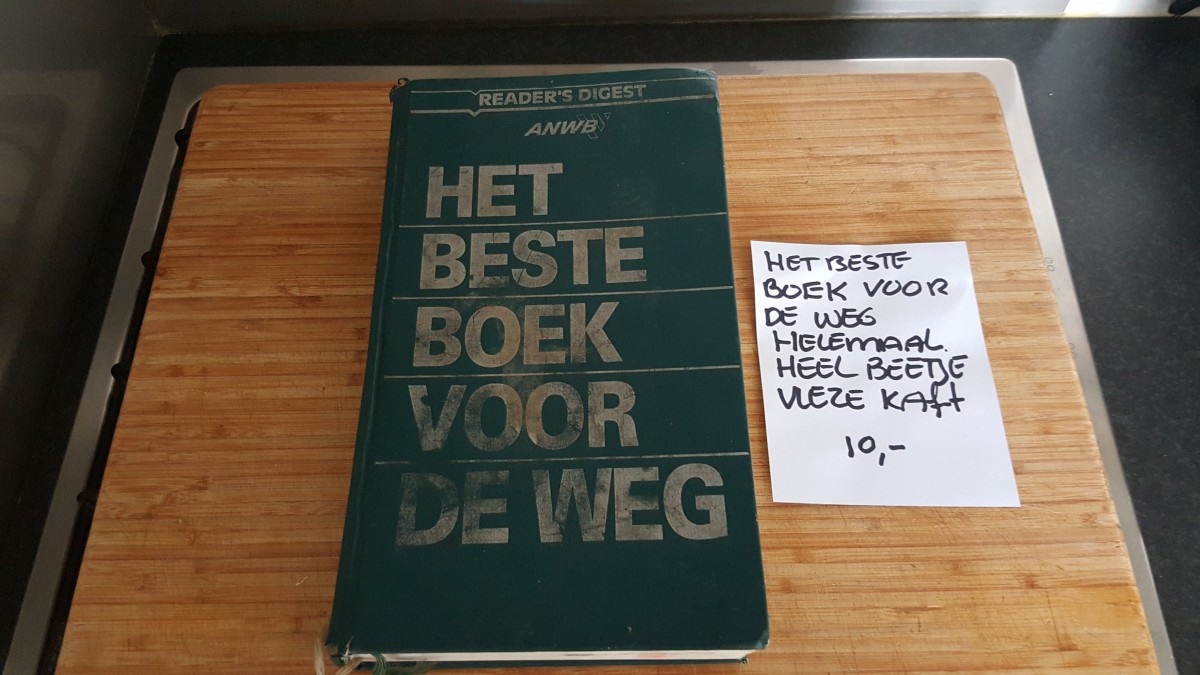 READER'S DIGEST
ANWB
HET
BESTE
BOEK
VOOR
DE WEG
HET BESTE
BOEK VOOR
DE WEG
HELEMAAL.
HEEL BEETJE
VIEZE KAft
10,-